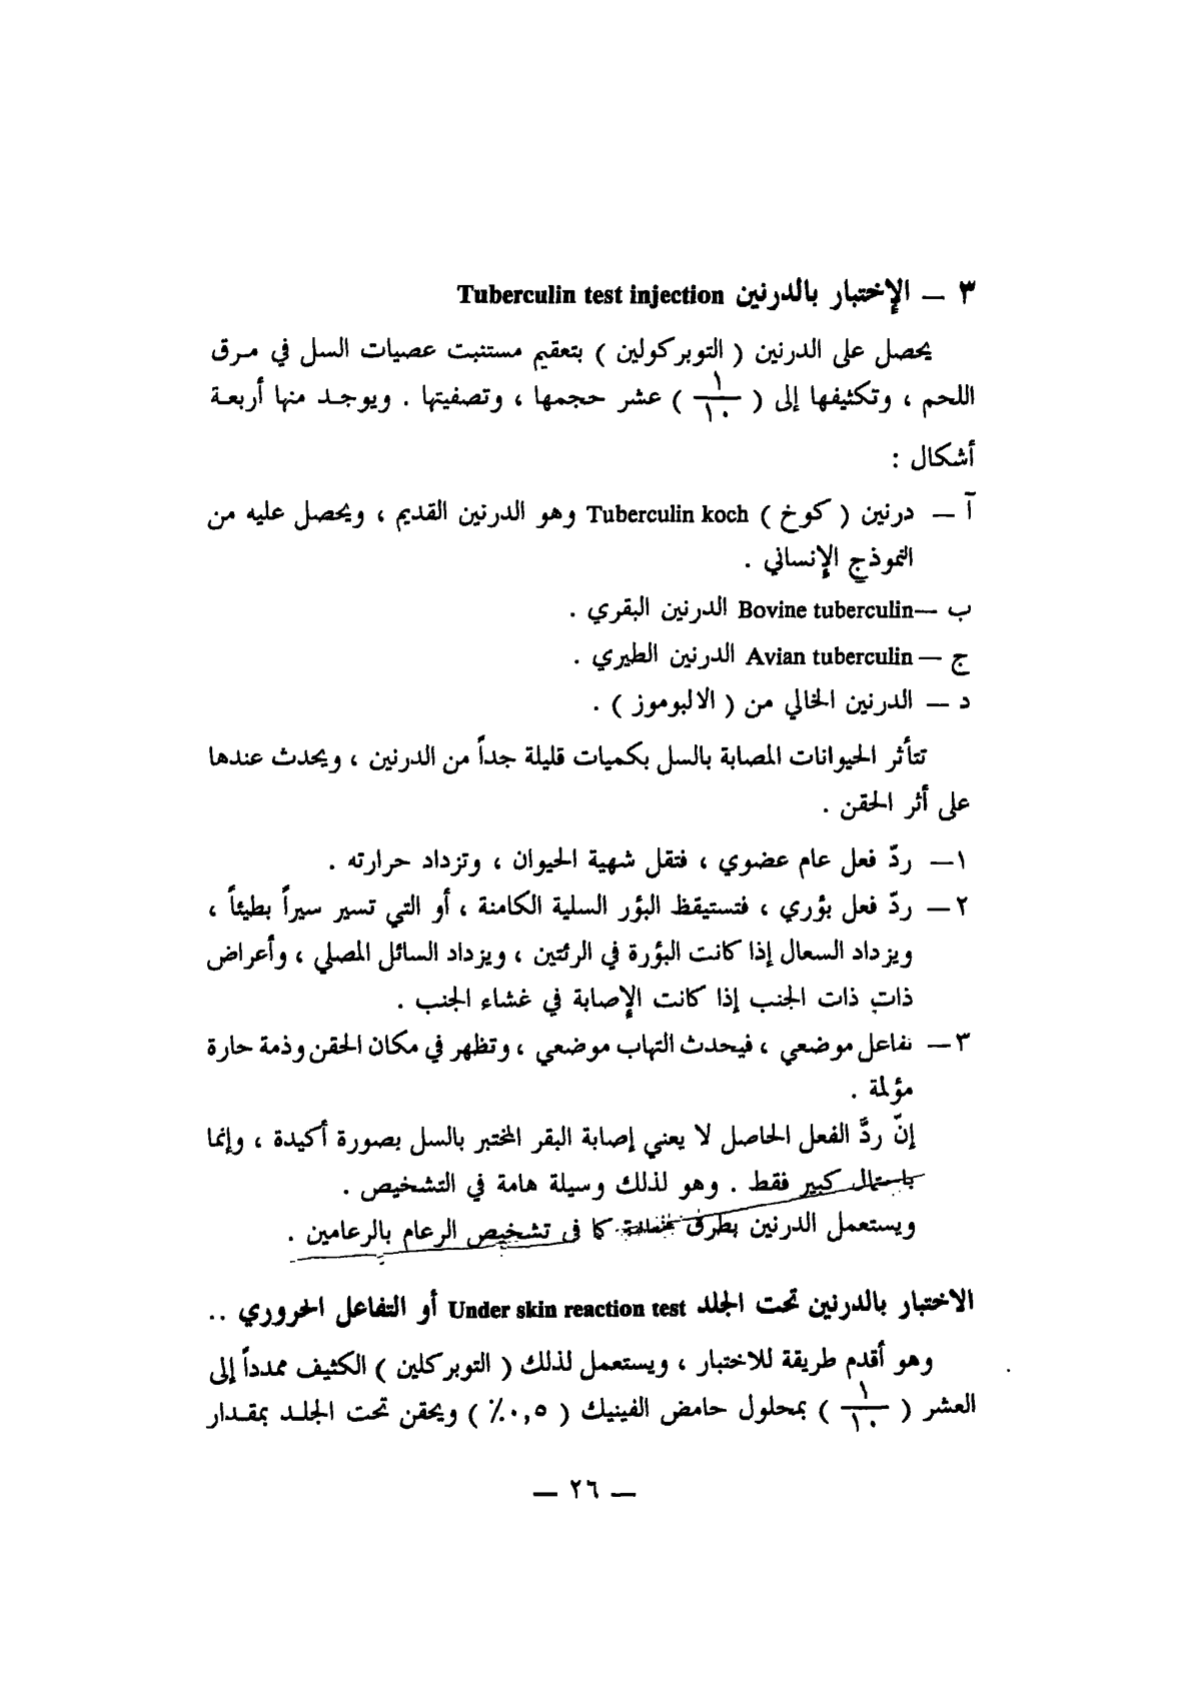 ٣ — الإختبار بالدرنين Tuberculin test injection
يحصل على الدرنين ( التوبركولين ) بتعقيم مستنبت عصيات السل في مرق
اللحم ، وتكثيفها إلى ( ١/١٠ ) عشر حجمها ، وتصفيتها . ويوجد منها أربعة
أشكال :
آ — درنين ( كوخ ) Tuberculin koch وهو الدرنين القديم ، ويحصل عليه من
النموذج الإنساني .
ب —Bovine tuberculin الدرنين البقري .
ج — Avian tuberculin الدرنين الطيري .
د — الدرنين الخالي من ( الالبوموز ) .
تتأثر الحيوانات المصابة بالسل بكميات قليلة جداً من الدرنين ، ويحدث عندها
على أثر الحقن .
١— ردّ فعل عام عضوي ، فتقل شهية الحيوان ، وتزداد حرارته .
٢— ردّ فعل بؤري ، فتستيقظ البؤر السلية الكامنة ، أو التي تسير سيراً بطيئاً ،
ويزداد السعال إذا كانت البؤرة في الرئتين ، ويزداد السائل المصلي ، وأعراض
ذات ذات الجنب إذا كانت الإصابة في غشاء الجنب .
٣— تفاعل موضعي ، فيحدث التهاب موضعي ، وتظهر في مكان الحقن وذمة حارة
مؤلمة .
إنّ ردَّ الفعل الحاصل لا يعني إصابة البقر المختبر بالسل بصورة أكيدة ، وإنما
باحتمال كبير فقط . وهو لذلك وسيلة هامة في التشخيص .
ويستعمل الدرنين بطرق مختلفة كما في تشخيص الرعام بالرعامين .
الاختبار بالدرنين تحت الجلد Under skin reaction test أو التفاعل الحروري ..
وهو أقدم طريقة للاختبار ، ويستعمل لذلك ( التوبركلين ) الكثيف ممدداً إلى
العشر ( ١/١٠ ) بمحلول حامض الفينيك ( ٠,٥٪ ) ويحقن تحت الجلد بمقدار
— ٢٦ —